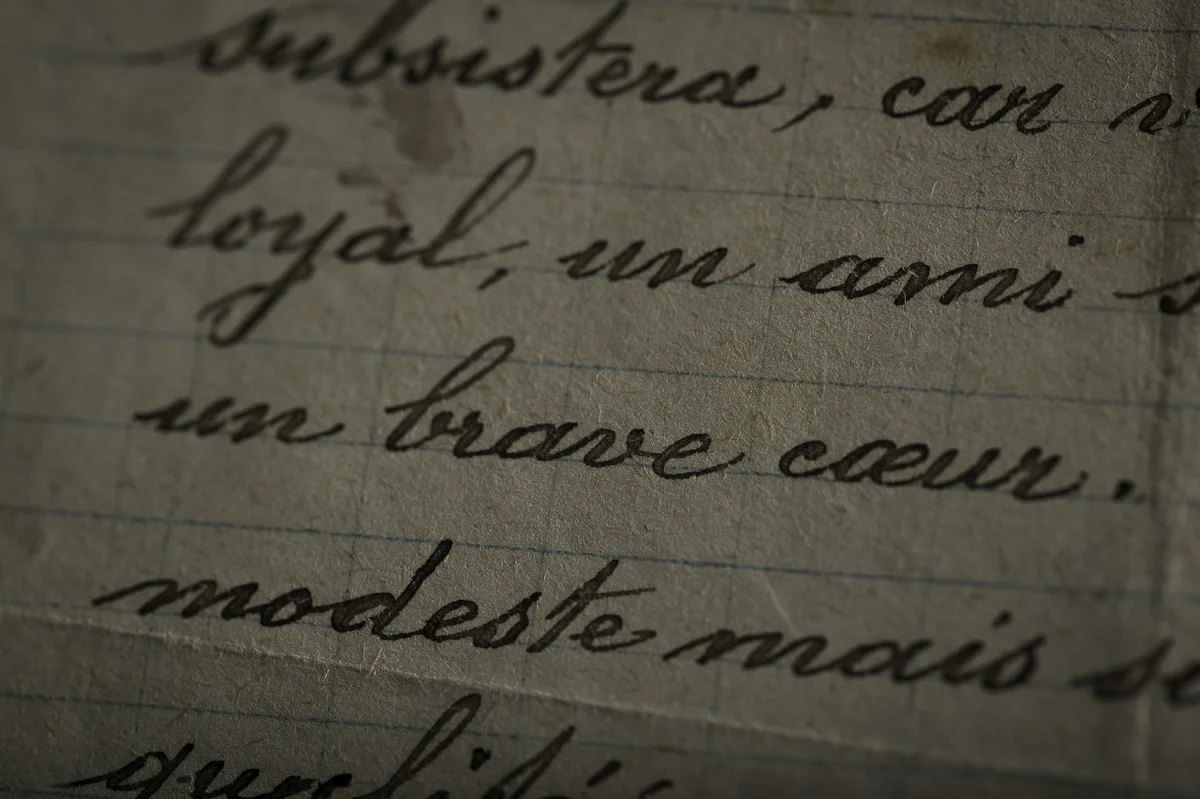 subsistera, car
loyal, un ami
un brave cœur.
modeste mais
qualités